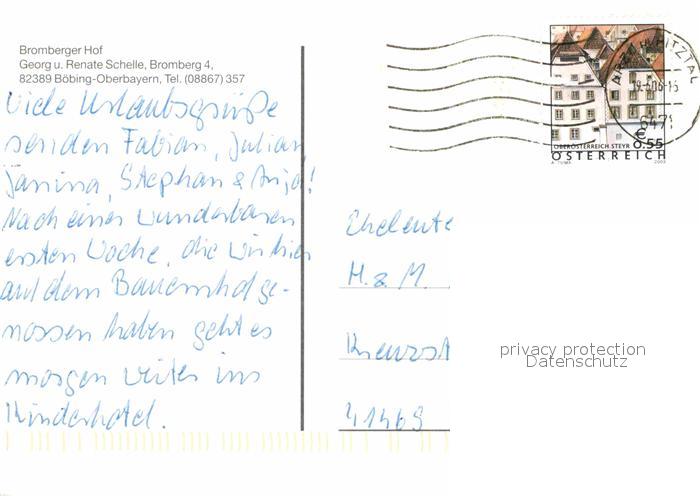 Bromberger Hof
Georg u. Renate Schelle, Bromberg 4,
82389 Böbing-Oberbayern, Tel. (08867) 357
Viele Urlaubsgrüße
senden Fabian, Julian,
Janina, Stephan & Anja!
Nach einer wunderbaren
ersten Woche, die wir hier
auf dem Bauernhof ge-
nossen haben geht es
morgen weiter ins
Kinderhotel.
OBERÖSTERREICH STEYR 0.55
ÖSTERREICH
A. TUMA 2003
PITZTAL
6471
Eheleute
H. & M.
41469
privacy protection
Datenschutz